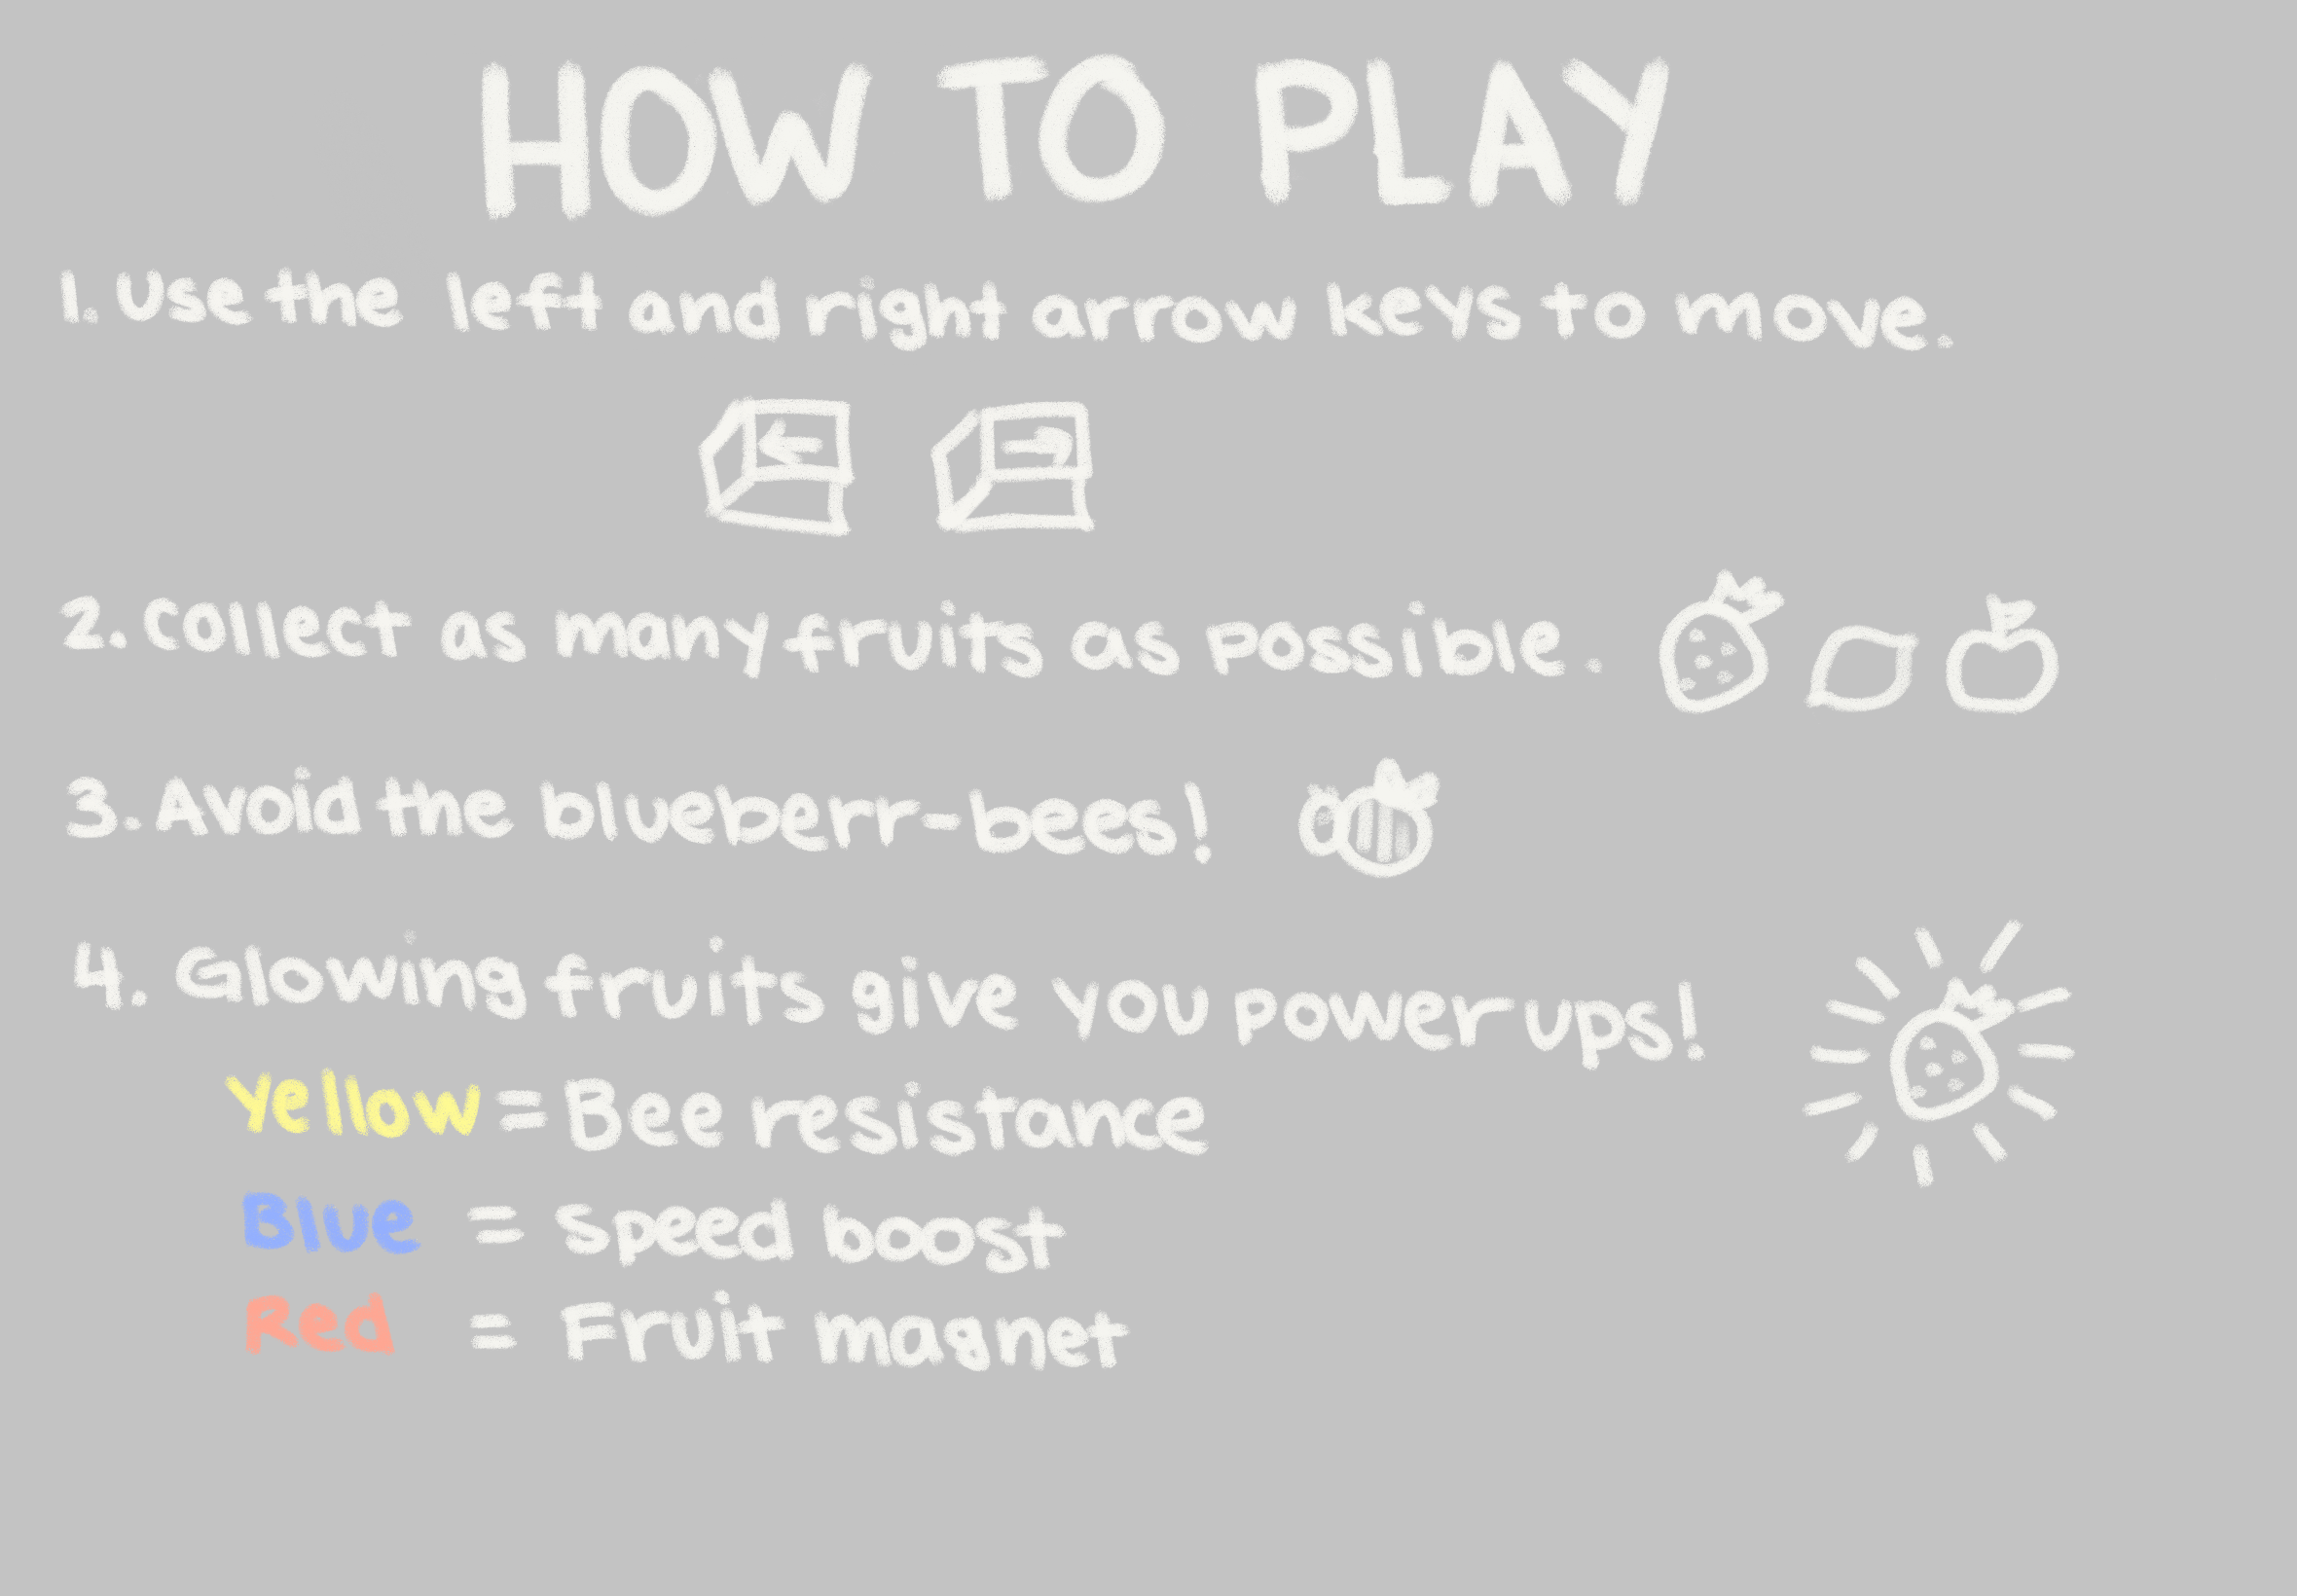 HOW TO PLAY
1. Use the left and right arrow keys to move.
← →
2. Collect as many fruits as possible.
3. Avoid the blueberr-bees!
4. Glowing fruits give you power ups!
Yellow = Bee resistance
Blue = Speed boost
Red = Fruit magnet